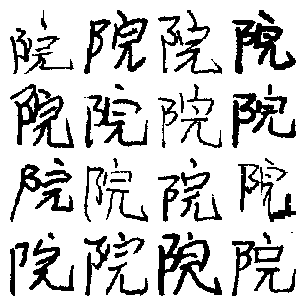 院院院院
院院院院
院院院院
院院院院